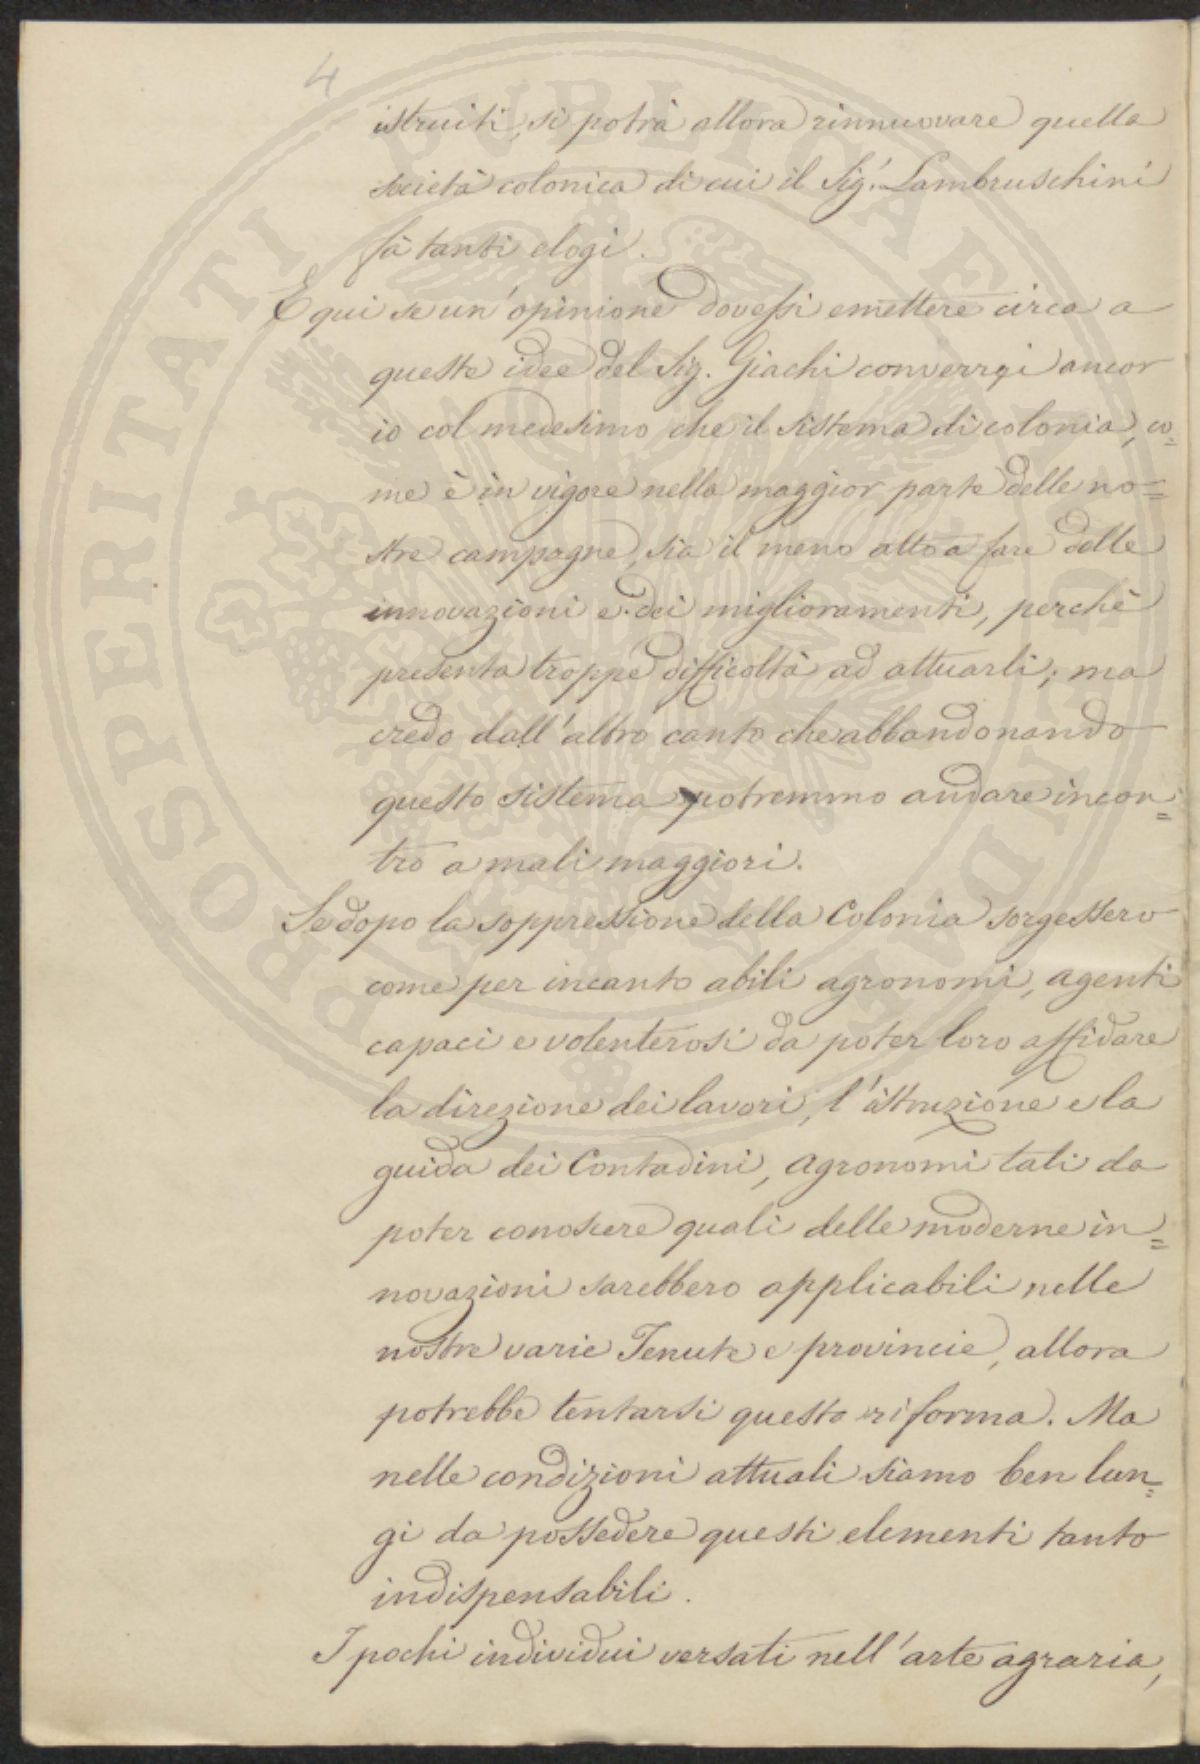 4
istruiti, si potrà allora rinnuovare quella
società colonica di cui il Sig.r Lambruschini
fà tanti elogi.
E qui se un'opinione dovessi emettere circa a
queste idee del Sig. Giachi converrei ancor
io col medesimo che il sistema di colonia, co=
me è in vigore nella maggior parte delle no=
stre campagne, sia il meno atto a fare delle
innovazioni e dei miglioramenti, perchè
presenta troppe difficoltà ad attuarli; ma
credo dall'altro canto che abbandonando
questo sistema potremmo andare incon=
tro a mali maggiori.
Se dopo la soppressione della Colonia sorgessero
come per incanto abili agronomi, agenti
capaci e volenterosi da poter loro affidare
la direzione dei lavori, l'istruzione e la
guida dei Contadini, agronomi tali da
poter conoscere quali delle moderne in=
novazioni sarebbero applicabili nelle
nostre varie Tenute e provincie, allora
potrebbe tentarsi questa riforma. Ma
nelle condizioni attuali siamo ben lun=
gi da possedere questi elementi tanto
indispensabili.
I pochi individui versati nell'arte agraria,
PROSPERITATI PUBLICAE AUGENDAE